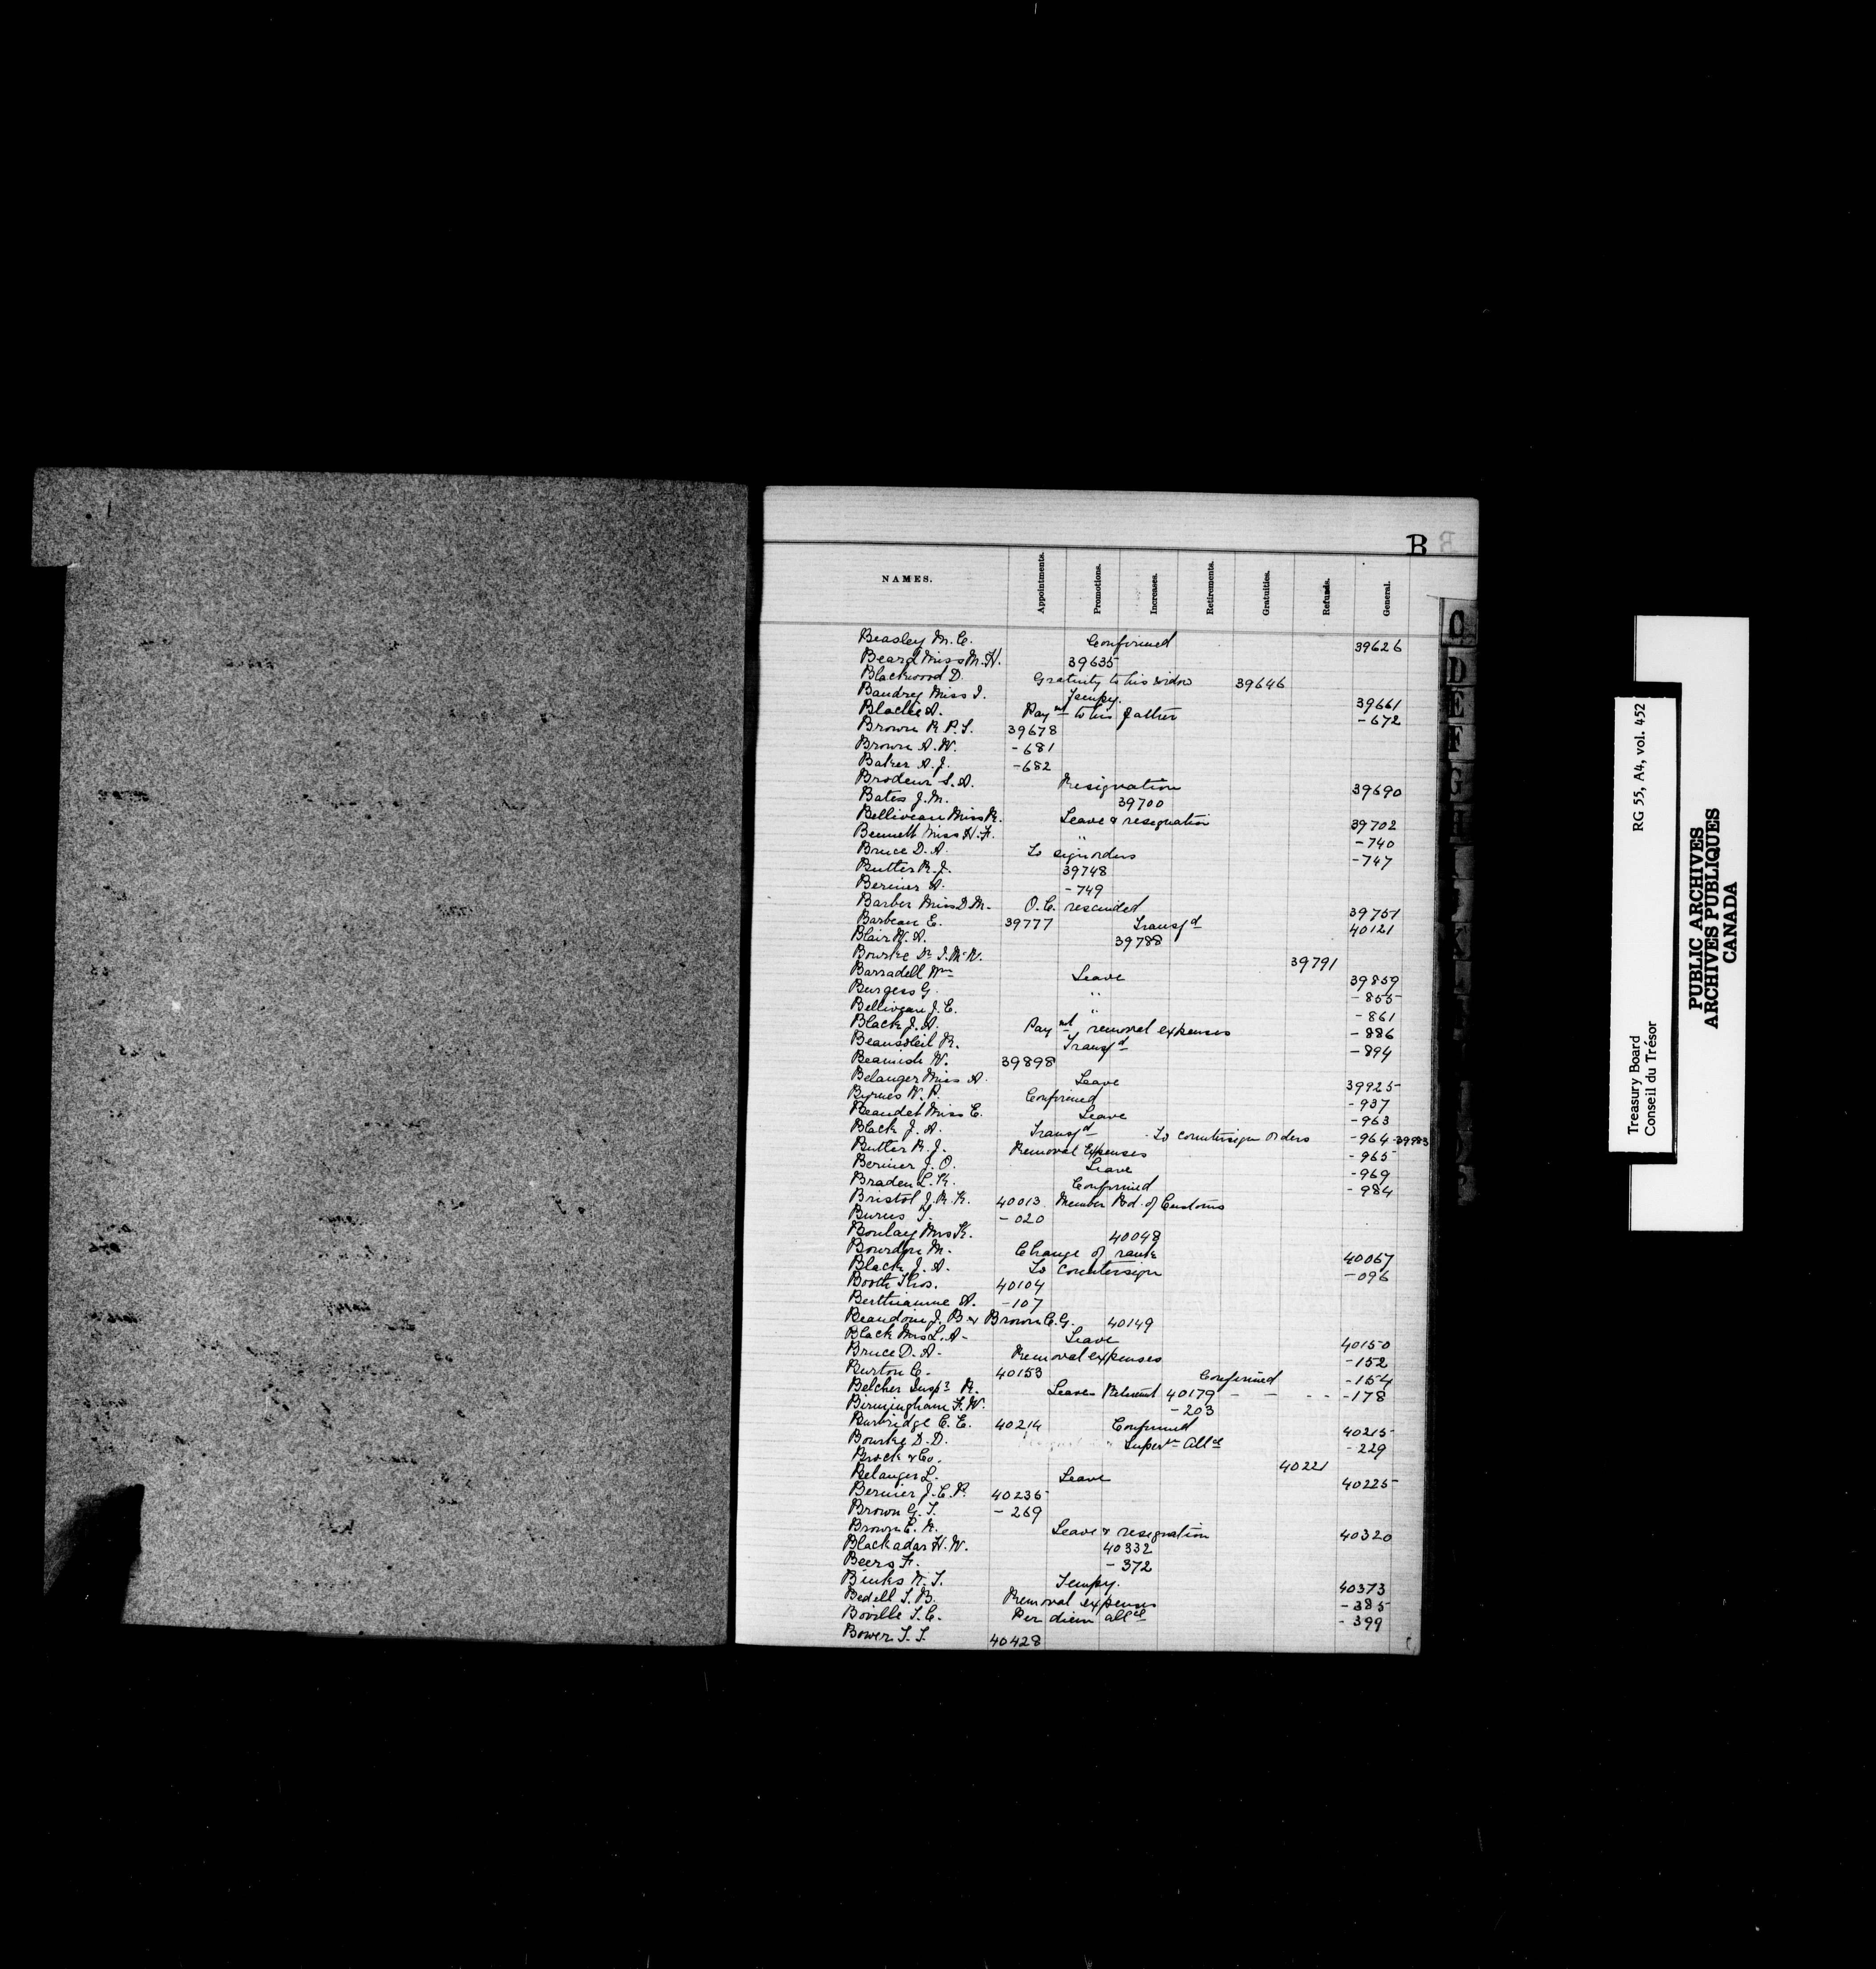 B
NAMES. Appointments. Promotions. Increases. Retirements. Gratuities. Refunds. General.
Beasley M. C. Confirmed 39626
Beard Miss M. H. 39635
Blackwood D. Gratuity to his widow 39646
Baudrey Miss I. Tempy. 39661
Blackie A. Paymt to his father -672
Brown R. P. S. 39678
Brown A. W. -681
Baker A. J. -682
Brodeur S. A. Resignation 39690
Bates J. M. 39700
Belliveau Miss R. Leave & resignation 39702
Bennett Miss H. F. " -740
Bruce D. A. To sign orders -747
Butler R. J. 39748
Bernier A. -749
Barber Miss D. M. O. C. rescinded 39751
Barbeau E. 39777 Transfd 40121
Blair W. A. 39788
Bourke Dr I. McW. 39791
Barradell Wm Leave 39859
Burgess G. " -855
Belliveau J. E. " -861
Black J. A. Paymt removal expenses -886
Beausoleil R. Transfd -894
Beamish W. 39898
Belanger Miss A. Leave 39925
Byrnes W. P. Confirmed -937
Beaudet Miss E. Leave -963
Black J. A. Transfd - To countersign orders -964-39983
Butler R. J. Removal Expenses -965
Bernier J. O. Leave -969
Braden L. K. Confirmed -984
Bristol J. R. K. 40013 Member Bd. of Customs
Burns T. -020
Boulay Mrs K. 40048
Bourdon M. Change of rank 40067
Black J. A. To countersign -096
Booth Thos. 40104
Berthiaume A. -107
Beaudoin J. B & Brown C. G. 40149
Black Mrs L. A- Leave 40150
Bruce D. A- Removal expenses -152
Burton C. 40153 Confirmed -154
Belcher Inspr R. Leave Retirement 40179 - - -- -178
Birmingham F. W. -203
Burbridge C. E. 40214 Confirmed 40215
Bourke D. D. Supern Allce -229
Brock & Co. 40221
Belanger L. Leave 40225
Bernier J. E. P. 40236
Brown G. T. -269
Brown C. R. Leave & resignation 40320
Blackadar H. W. 40332
Beers F. -372
Binks N. T. Tempy. 40373
Bedell T. B. Removal expenses -385
Boville T. C. Per diem allce -399
Bower T. T. 40428
C
D
E
F
G
Treasury Board RG 55, A4, vol. 452
Conseil du Trésor
PUBLIC ARCHIVES
ARCHIVES PUBLIQUES
CANADA